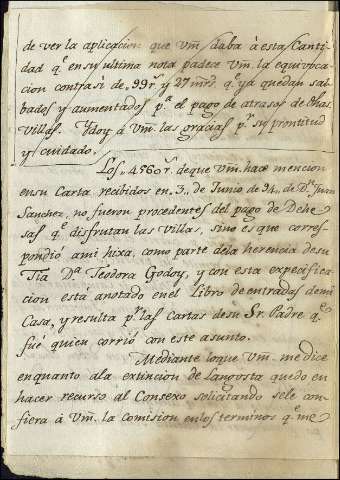 de ver la aplicacion que Vm̃ daba á esta Canti-
dad q.e en su ultima nota padece Vm. la equivoca-
cion contra si de 99 r.s y 27 mr̃s. q.e ya quedan sal-
bados y aumentados p.a el pago de atrasos de dhas
Villas. Y doy á Vm. las gracias p.r su prontitud
y cuidado.
Los 4560 r.s de que Vm. hace mencion
en su Carta recibidos en 3 de Junio de 94 de D.n Juan
Sanchez, no fueron procedentes del pago de Dehe
sas q.e disfrutan las Villas, sino es que corres-
pondió a mi hixa, como parte de la herencia de su
Tia D.a Teodora Godoy, y con esta expecifica-
cion está anotado en el Libro de entradas de mi
Casa, y resulta p.r las cartas de su S.r Padre q.e
fué quien corrió con este asunto.
Mediante lo que Vm. me dice
en quanto a la extincion de Langosta quedo en
hacer recurso al Consexo solicitando se le con-
fiera á Vm. la Comision en los terminos q.e me